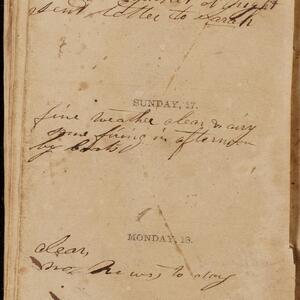 sent letter to Sarah
SUNDAY, 17.
fine weather clear & airy
some firing in afternoon
by boats
MONDAY, 18.
clear,
no news to day